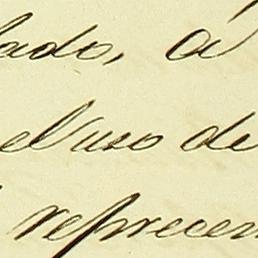 lado, á
el uso de
reprecen